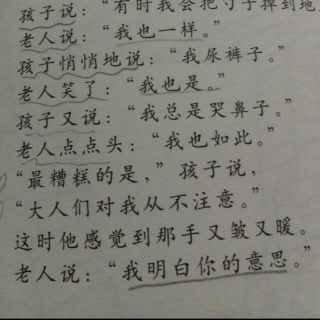 孩子说：“有时我会把勺子掉到地
老人说：“我也一样。”
孩子悄悄地说：“我尿裤子。”
老人笑了：“我也是。”
孩子又说：“我总是哭鼻子。”
老人点点头：“我也如此。”
“最糟糕的是，”孩子说，
“大人们对我从不注意。”
这时他感觉到那手又皱又暖。
老人说：“我明白你的意思。”